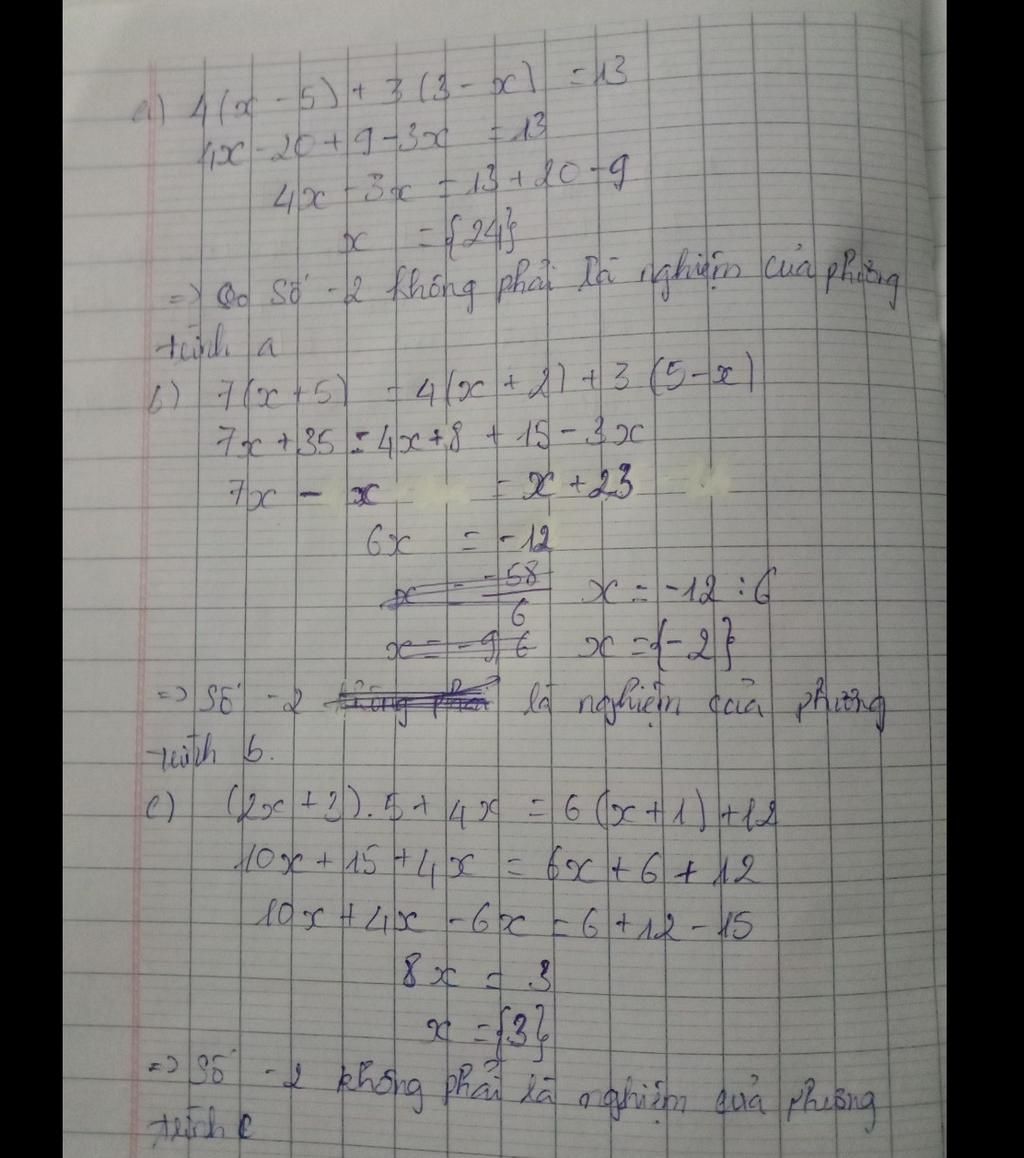 a) 4(x - 5) + 3(3 - x) = 13
4x - 20 + 9 - 3x = 13
4x - 3x = 13 + 20 - 9
x = {24}
=> Số -2 không phải là nghiệm của phương
trình a
b) 7(x + 5) = 4(x + 2) + 3(5 - x)
7x + 35 = 4x + 8 + 15 - 3x
7x - x = x + 23
6x = -12
x = -58/6 x = -12 : 6
x = -9,6 x = {-2}
=> Số -2 không phải là nghiệm của phương
trình b.
c) (2x + 3).5 + 4x = 6(x + 1) + 12
10x + 15 + 4x = 6x + 6 + 12
10x + 4x - 6x = 6 + 12 - 15
8x = 3
x = {3}
=> Số -2 không phải là nghiệm của phương
trình c